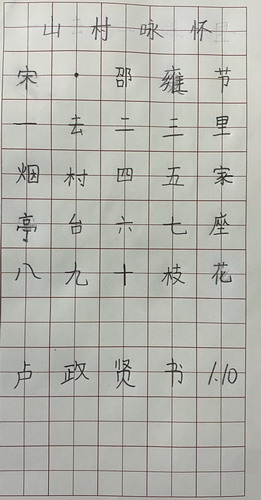 山村咏怀
宋·邵雍节
一去二三里
烟村四五家
亭台六七座
八九十枝花
卢政贤书 1.10